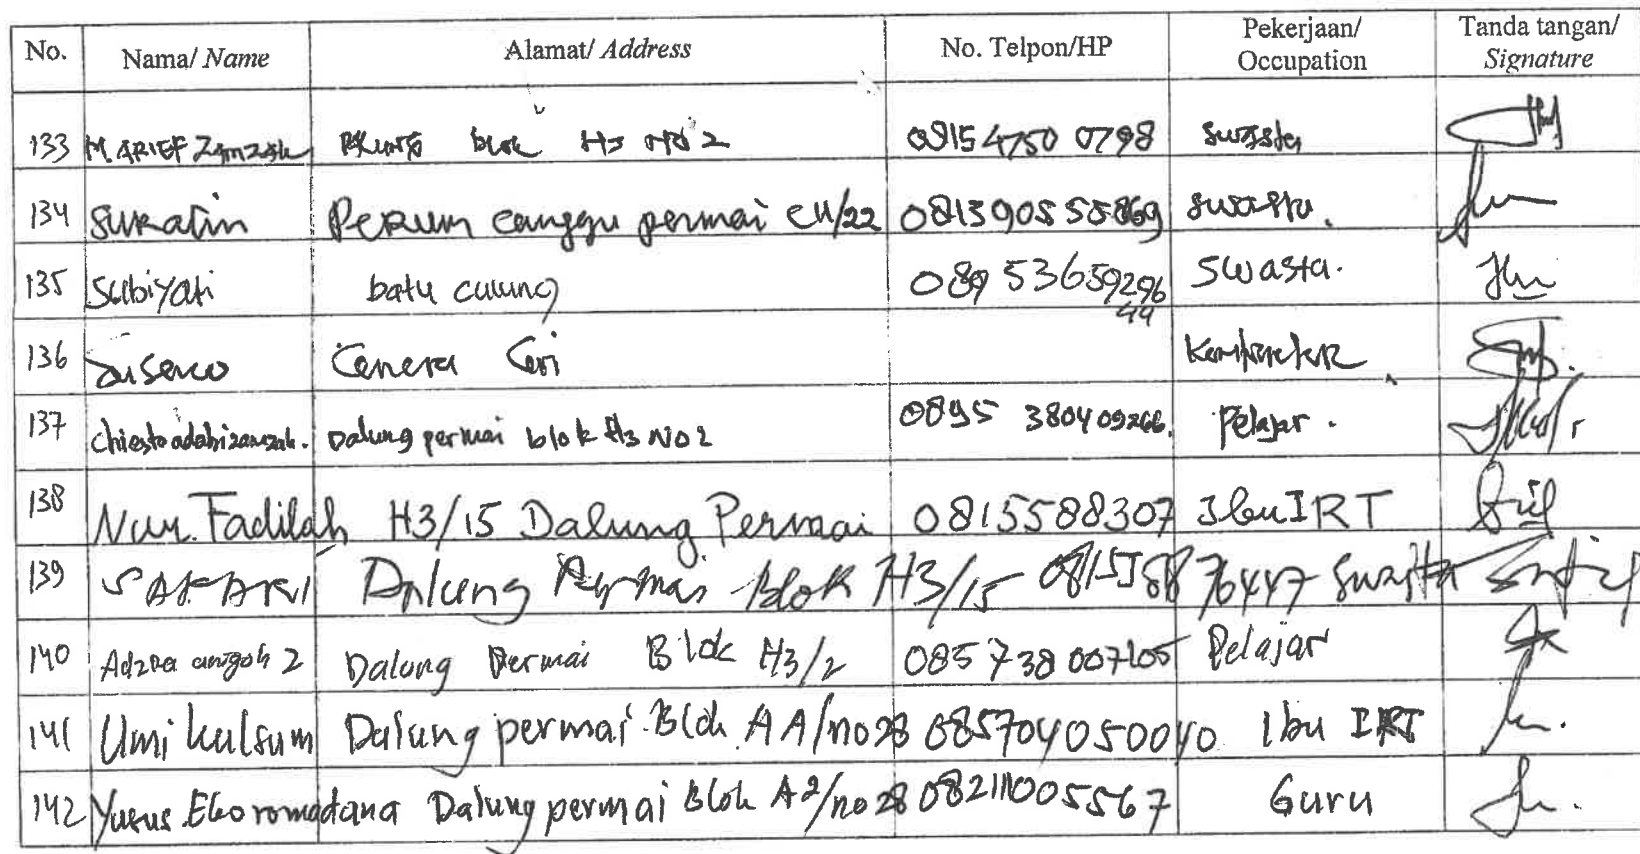 No. Nama/ Name Alamat/ Address No. Telpon/HP Pekerjaan/ Occupation Tanda tangan/ Signature
133 M. ARIEF Zamzah blok H3 NO 2 08154750 0798 swasta
134 Suratin Perum canggu permai CU/22 081390555869 swasta.
135 Subiyati batu culung 089 53659296 44 Swasta.
136 Suseno
137 dalung permai blok H3 NO2 0895 380409266. Pelajar.
138 Nur. Fadilah H3/15 Dalung Permai 0815588307 Ibu IRT
139 Dalung Permai Blok H3/15 0815588 76447 Swasta
140 Dalung Permai Blok H3/2 085738007105 Pelajar
141 Umi kulsum Dalung permai Blok AA/no 28 085704050040 Ibu IRT
142 Yunus Eko romadana Dalung permai Blok A2/no 28 082111005567 Guru